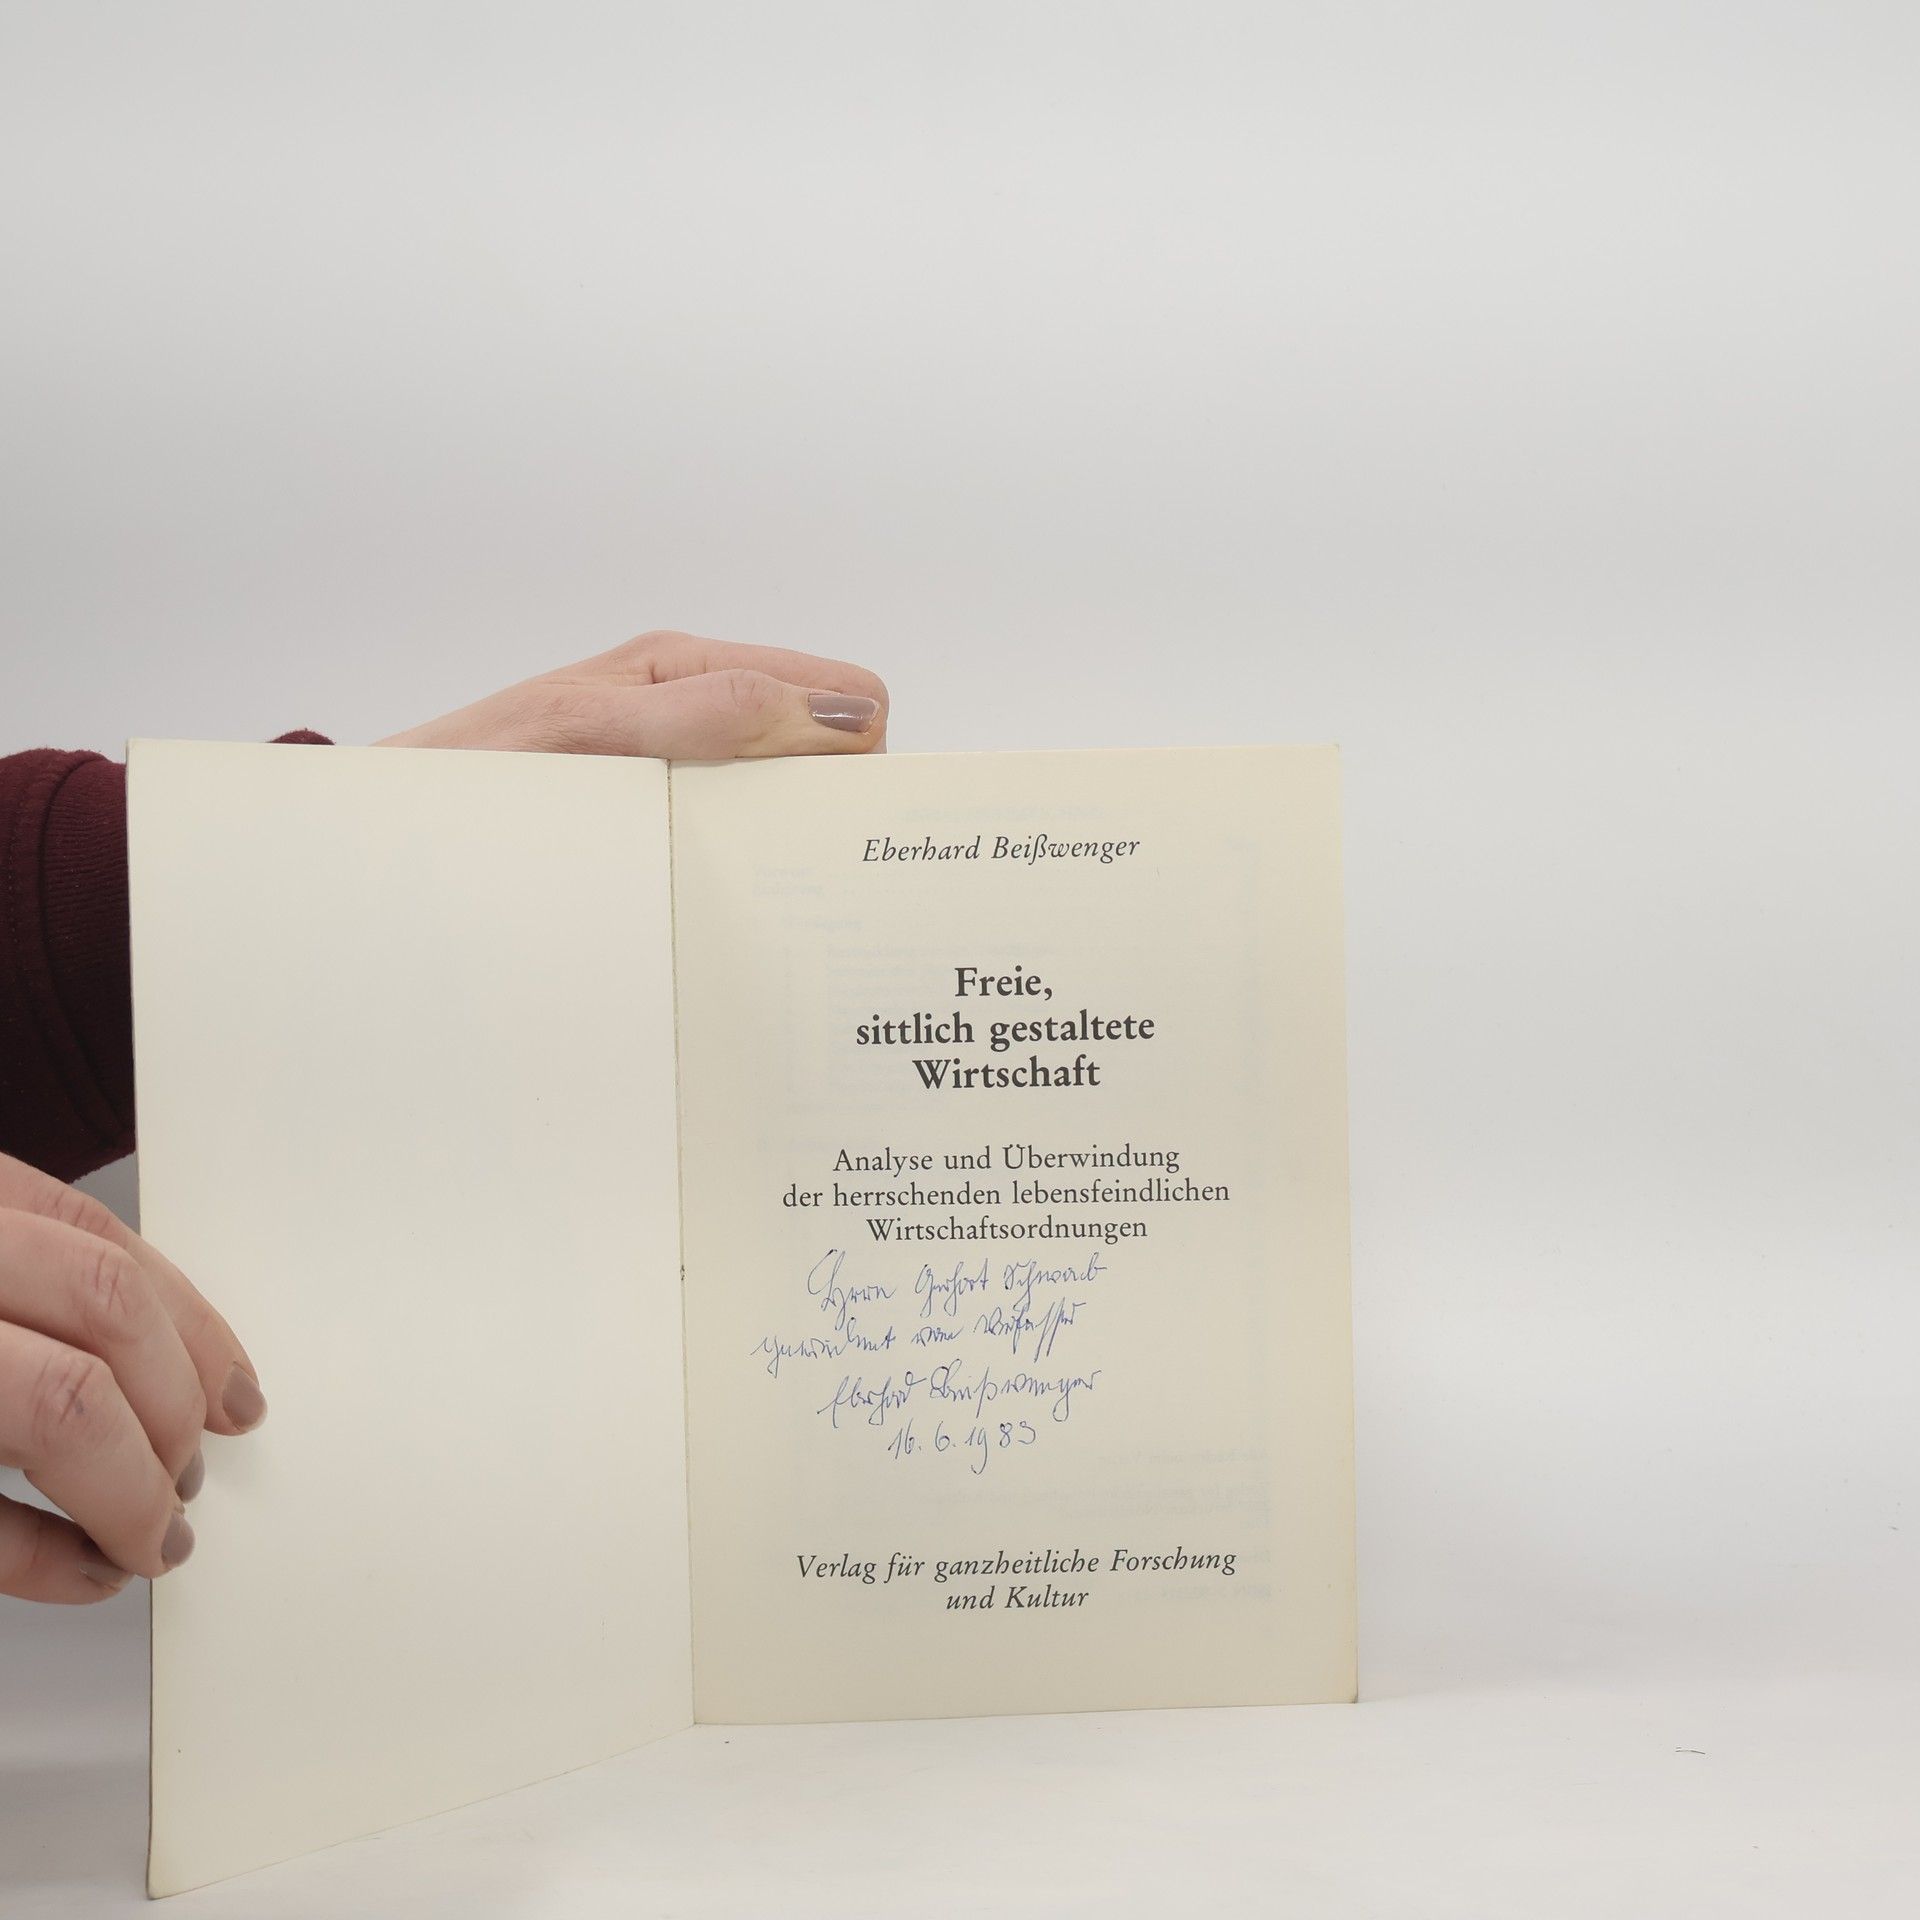 Eberhard Beißwenger
Freie,
sittlich gestaltete
Wirtschaft
Analyse und Überwindung
der herrschenden lebensfeindlichen
Wirtschaftsordnungen
Herrn Gerhart Schwab
gewidmet vom Verfasser
Eberhard Beißwenger
16. 6. 1983
Verlag für ganzheitliche Forschung
und Kultur